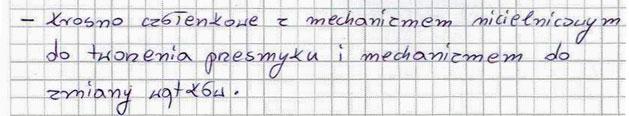 - krosno czółenkowe z mechanizmem nicielnicowym
do tworzenia przesmyku i mechanizmem do
zmiany wątków.